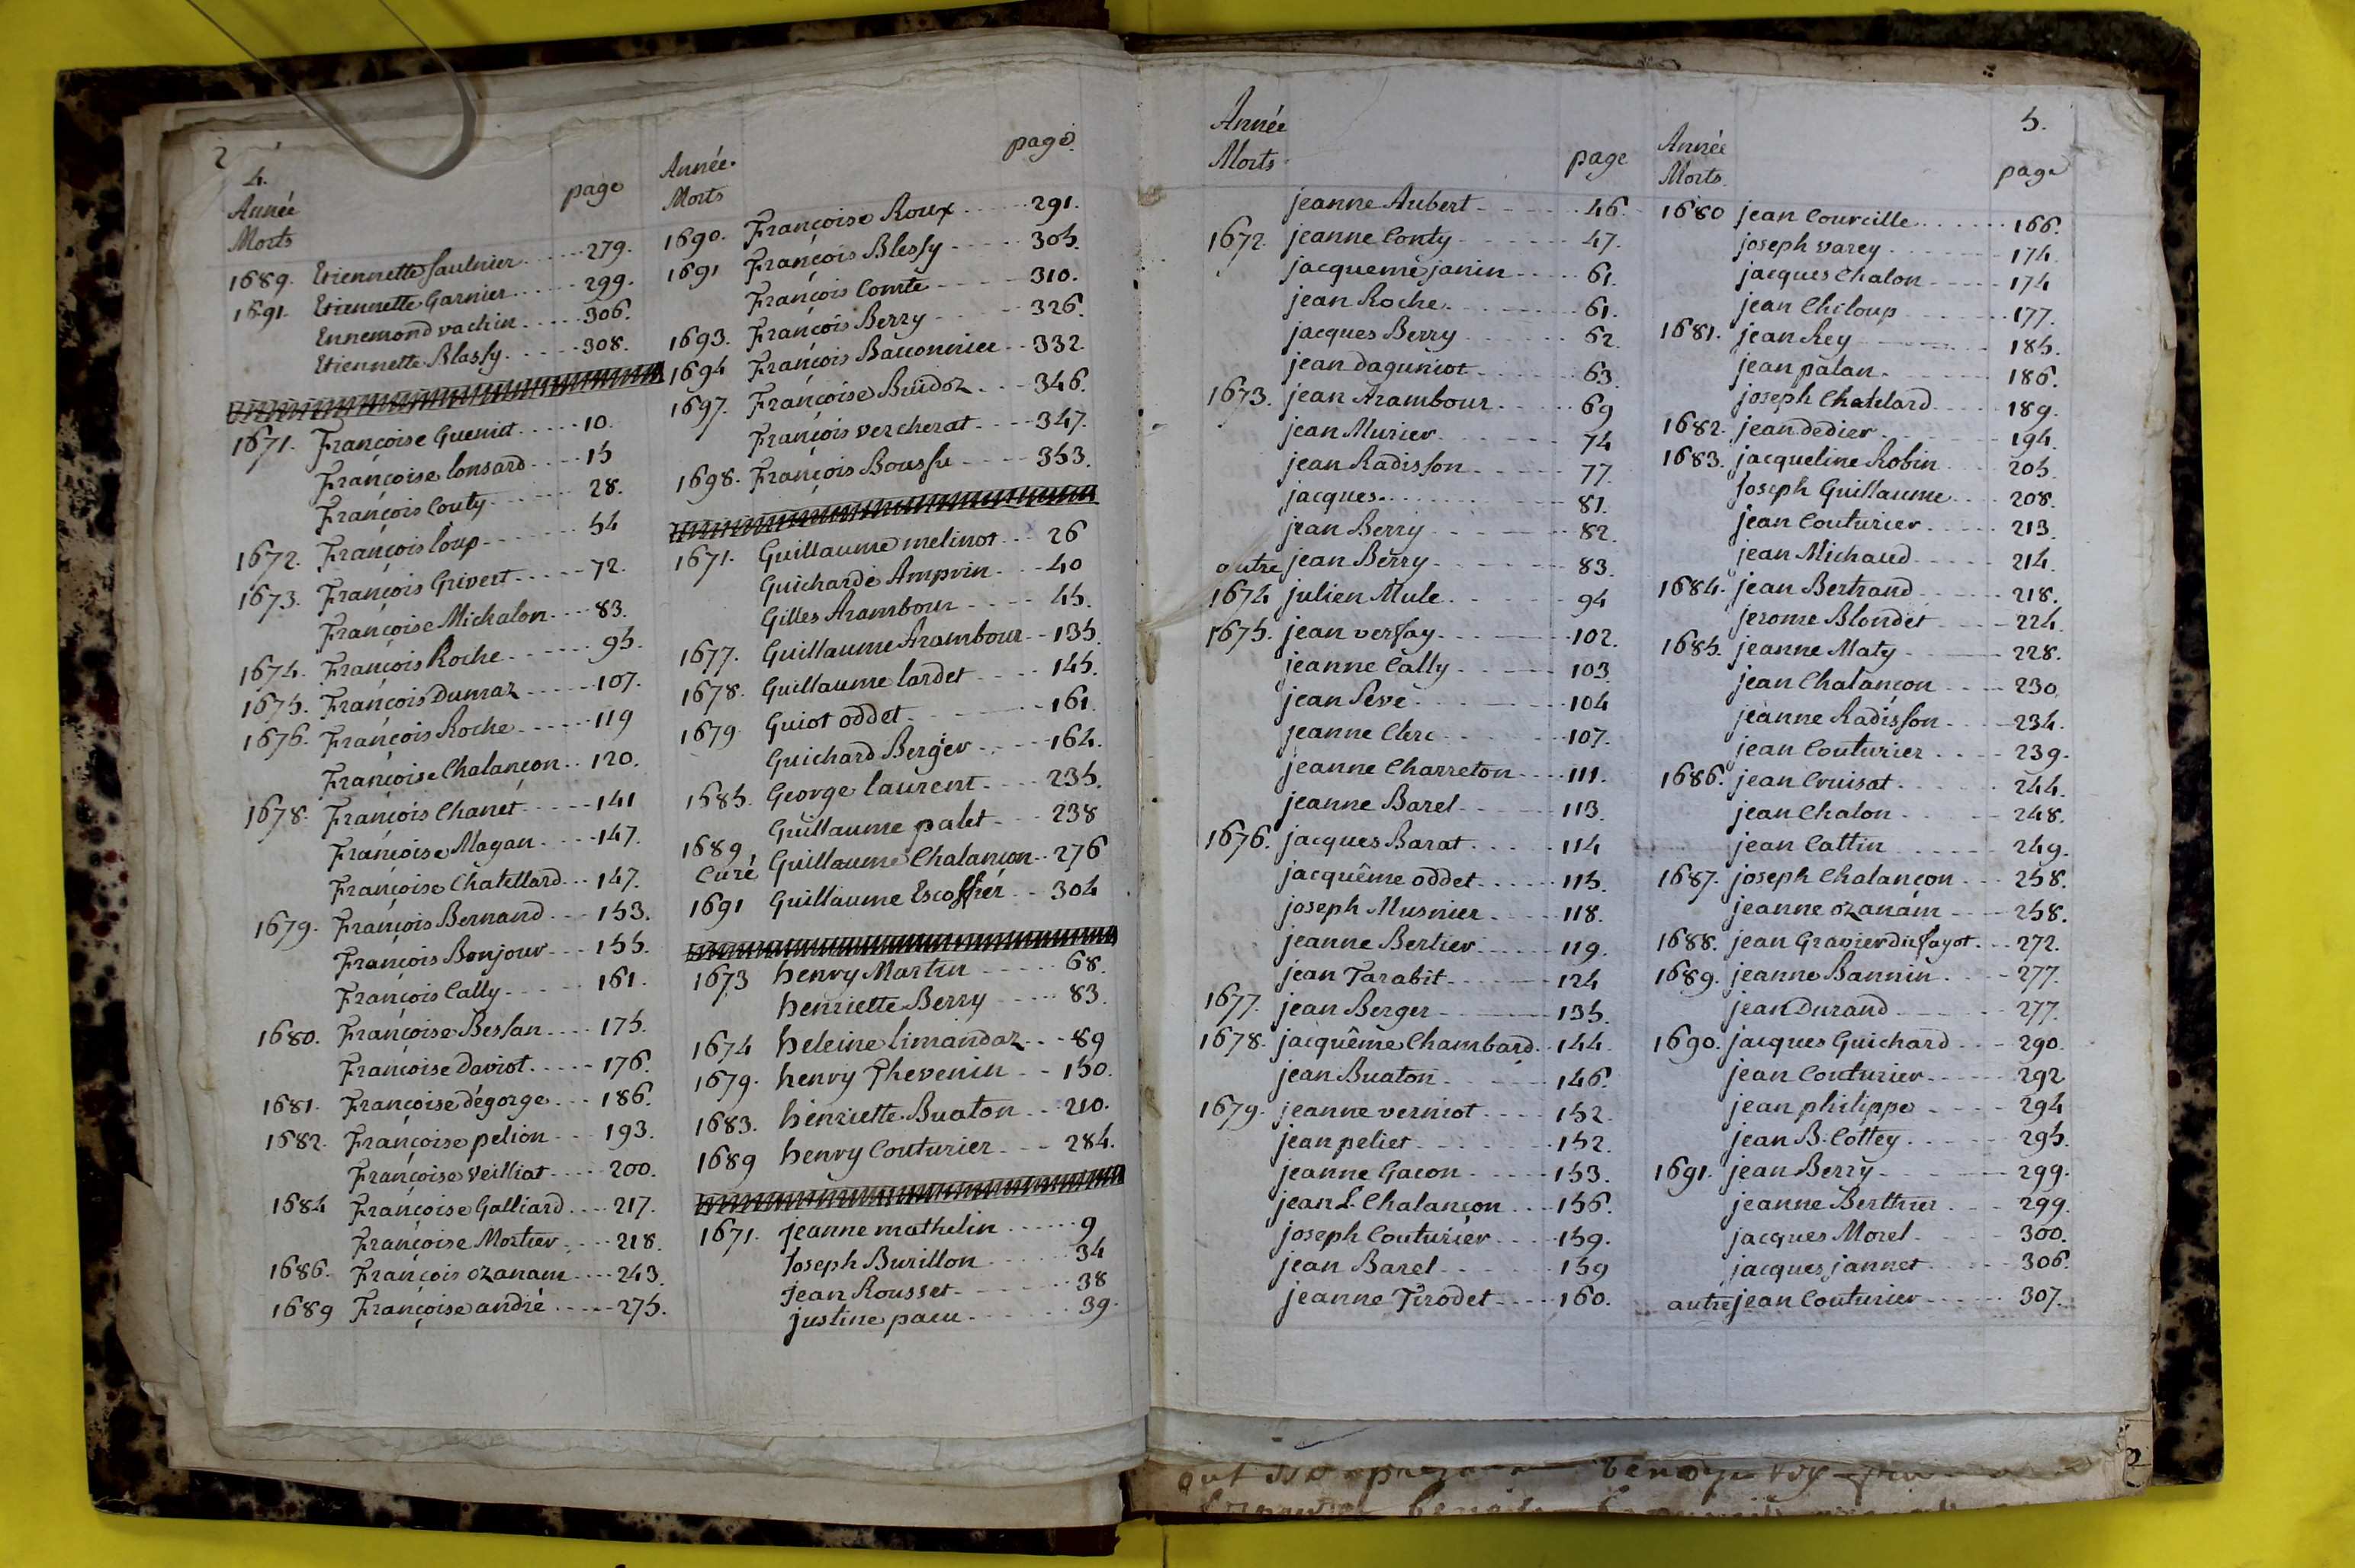 2
4.
Année
Morts
page
1689. Etiennette Saulnier 279.
1691. Etiennette Garnier 299.
Ennemond vachin 306.
Etiennette Blassy 308.
1671. Françoise Guenit 10.
Françoise lonsard 15
François Couty 28.
1672. François loup 54
1673. François Grivert 72.
Françoise Michalon 83.
1674. François Roche 95.
1675. François Dumaz 107.
1676. François Roche 119
Françoise Chalançon 120.
1678. François Chanet 141
Françoise Magan 147.
Françoise Chatellard 147.
1679. François Bernand 153.
François Bonjour 155.
François Cally 161.
1680. Françoise Bessan 175.
Françoise Daviot 176.
1681. Françoise dégorge 186.
1682. Françoise pelion 193.
Françoise veilliat 200.
1684 Françoise Galliard 217.
Françoise Mortier 218.
1686. François ozanam 243.
1689 Françoise andré 275.
Année.
Morts
page.
1690. Françoise Roux 291.
1691 François Blessy 305.
François Comte 310.
1693. François Berry 326.
1694 François Baconnier 332.
1697. Françoise Buidoz 346.
François vercherat 347.
1698. François Bousse 353.
1671. Guillaume melinot 26
Guicharde Amprin 40
Gilles Arambour 45.
1677. Guillaume Arambour 135.
1678. Guillaume lardet 145.
1679 Guiot oddet 161.
Guichard Berger 164.
1685. George laurent 235.
Guillaume palet 238
1689
Curé Guillaume Chalançon 276
1691 Guillaume Escoffier 304
1673 henry Martin 68.
henriette Berry 83.
1674 heleine limandaz 89
1679. henry Thevenin 150.
1683. henriette Buaton 210.
1689 henry Couturier 284.
1671. jeanne mathelin 9
Joseph Burillon 34
Jean Rousset 38
Justine pacu 39.
Année
Morts
page
jeanne Aubert 46.
1672. jeanne Conty 47.
jacqueme janin 61.
jean Roche 61.
jacques Berry 62.
jean daguniot 63.
1673. jean Arambour 69
jean Murier 74
jean Radisson 77.
jacques 81.
jean Berry 82.
autre jean Berry 83.
1674 julien Mule 94
1675. jean versay 102.
jeanne Cally 103.
jean Seve 104
jeanne Clerc 107.
jeanne Charreton 111.
jeanne Barel 113.
1676. jacques Barat 114
jacquême oddet 115.
joseph Musnier 118.
jeanne Bertier 119.
jean Tarabit 124
1677. jean Berger 135.
1678. jacquême Chambard 144.
jean Buaton 146.
1679. jeanne verniot 152.
jean peliet 152.
jeanne Gacon 153.
jean L. Chalançon 156.
joseph Couturier 159.
jean Barel 159
jeanne Tirodet 160.
5.
Année
Morts
page
1680 jean Courcille 166.
joseph varey 174.
jacques Chalon 174
jean Chiloup 177.
1681. jean Rey 185.
jean palan 186.
joseph Chatelard 189.
1682. jean dedier 194.
1683. jacqueline Robin 205.
Joseph Guillaume 208.
jean Couturier 213.
jean Michaud 214.
1684. jean Bertrand 218.
jerome Blondet 224.
1685. jeanne Maty 228.
jean Chalançon 230.
jeanne Radisson 234.
jean Couturier 239.
1686. jean Cruisat 244.
jean Chalon 248.
jean Cattin 249.
1687. joseph Chalançon 258.
jeanne ozanam 258.
1688. jean Gravier dit fayot 272.
1689. jeanne Bannin 277.
jean Durand 277.
1690. jacques Guichard 290.
jean Couturier 292
jean philippe 294
jean B. Cottey 295.
1691. jean Berry 299.
jeanne Berthier 299.
jacques Morel 300.
jacques jannet 306.
autre jean Couturier 307.